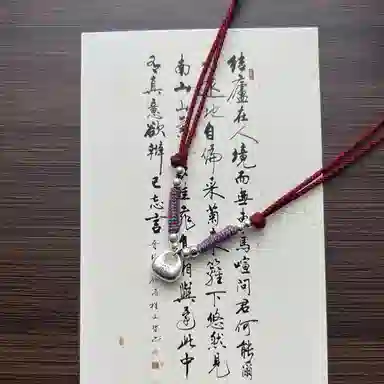 結廬在人境而無車馬喧問君何能爾
遠地自偏采菊東籬下悠然見
南山山佳飛鳥相與還此中
有真意欲辨已忘言